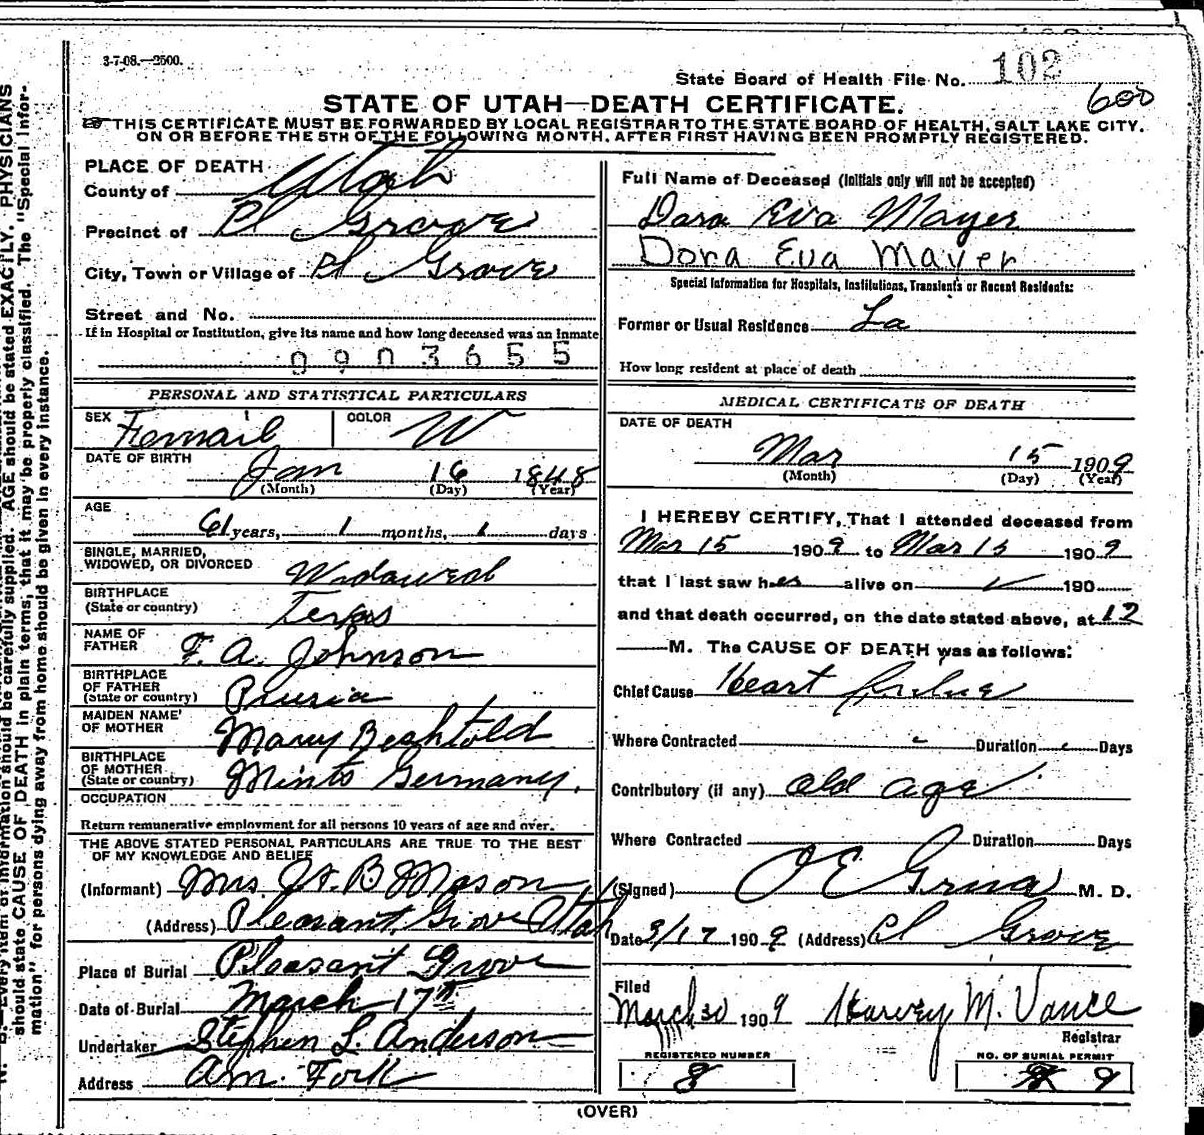 3-7-08.—2500.
State Board of Health File No. 102
600
STATE OF UTAH—DEATH CERTIFICATE.
THIS CERTIFICATE MUST BE FORWARDED BY LOCAL REGISTRAR TO THE STATE BOARD OF HEALTH, SALT LAKE CITY,
ON OR BEFORE THE 5TH OF THE FOLLOWING MONTH, AFTER FIRST HAVING BEEN PROMPTLY REGISTERED.
PLACE OF DEATH
County of Utah
Precinct of Pl Grove
City, Town or Village of Pl Grove
Street and No.
If in Hospital or Institution, give its name and how long deceased was an Inmate
0903655
PERSONAL AND STATISTICAL PARTICULARS
SEX Femail COLOR W
DATE OF BIRTH
Jan 16 1848
(Month) (Day) (Year)
AGE
61 years, 1 months, 1 days
SINGLE, MARRIED,
WIDOWED, OR DIVORCED Widowed
BIRTHPLACE
(State or country) Texas
NAME OF
FATHER F. A. Johnson
BIRTHPLACE
OF FATHER
(State or country) Prusia
MAIDEN NAME
OF MOTHER Mary Beshtold
BIRTHPLACE
OF MOTHER
(State or country) Germany.
OCCUPATION
Return remunerative employment for all persons 10 years of age and over.
THE ABOVE STATED PERSONAL PARTICULARS ARE TRUE TO THE BEST
OF MY KNOWLEDGE AND BELIEF
(Informant) Mrs. B Mason
(Address) Pleasant Grove Utah
Place of Burial Pleasant Grove
Date of Burial March 17th
Undertaker Stephen L. Anderson
Address Am. Fork
Full Name of Deceased (Initials only will not be accepted)
Dora Eva Mayer
Dora Eva Mayer
Special Information for Hospitals, Institutions, Transients or Recent Residents:
Former or Usual Residence La
How long resident at place of death
MEDICAL CERTIFICATE OF DEATH
DATE OF DEATH
Mar 15 1909
(Month) (Day) (Year)
I HEREBY CERTIFY, That I attended deceased from
Mar 15 1909 to Mar 15 1909
that I last saw her alive on 190
and that death occurred, on the date stated above, at 12
M. The CAUSE OF DEATH was as follows:
Chief Cause Heart failure
Where Contracted Duration Days
Contributory (if any) old age
Where Contracted Duration Days
(Signed) M. D.
Date 3/17 1909 (Address) Pl Grove
Filed
March 30 1909 Harvey M. Vance
Registrar
REGISTERED NUMBER
8
NO. OF BURIAL PERMIT
9
(OVER)
N. B.—Every item of information should be carefully supplied. AGE should be stated EXACTLY. PHYSICIANS
should state CAUSE OF DEATH in plain terms, that it may be properly classified. The "Special Infor-
mation" for persons dying away from home should be given in every instance.